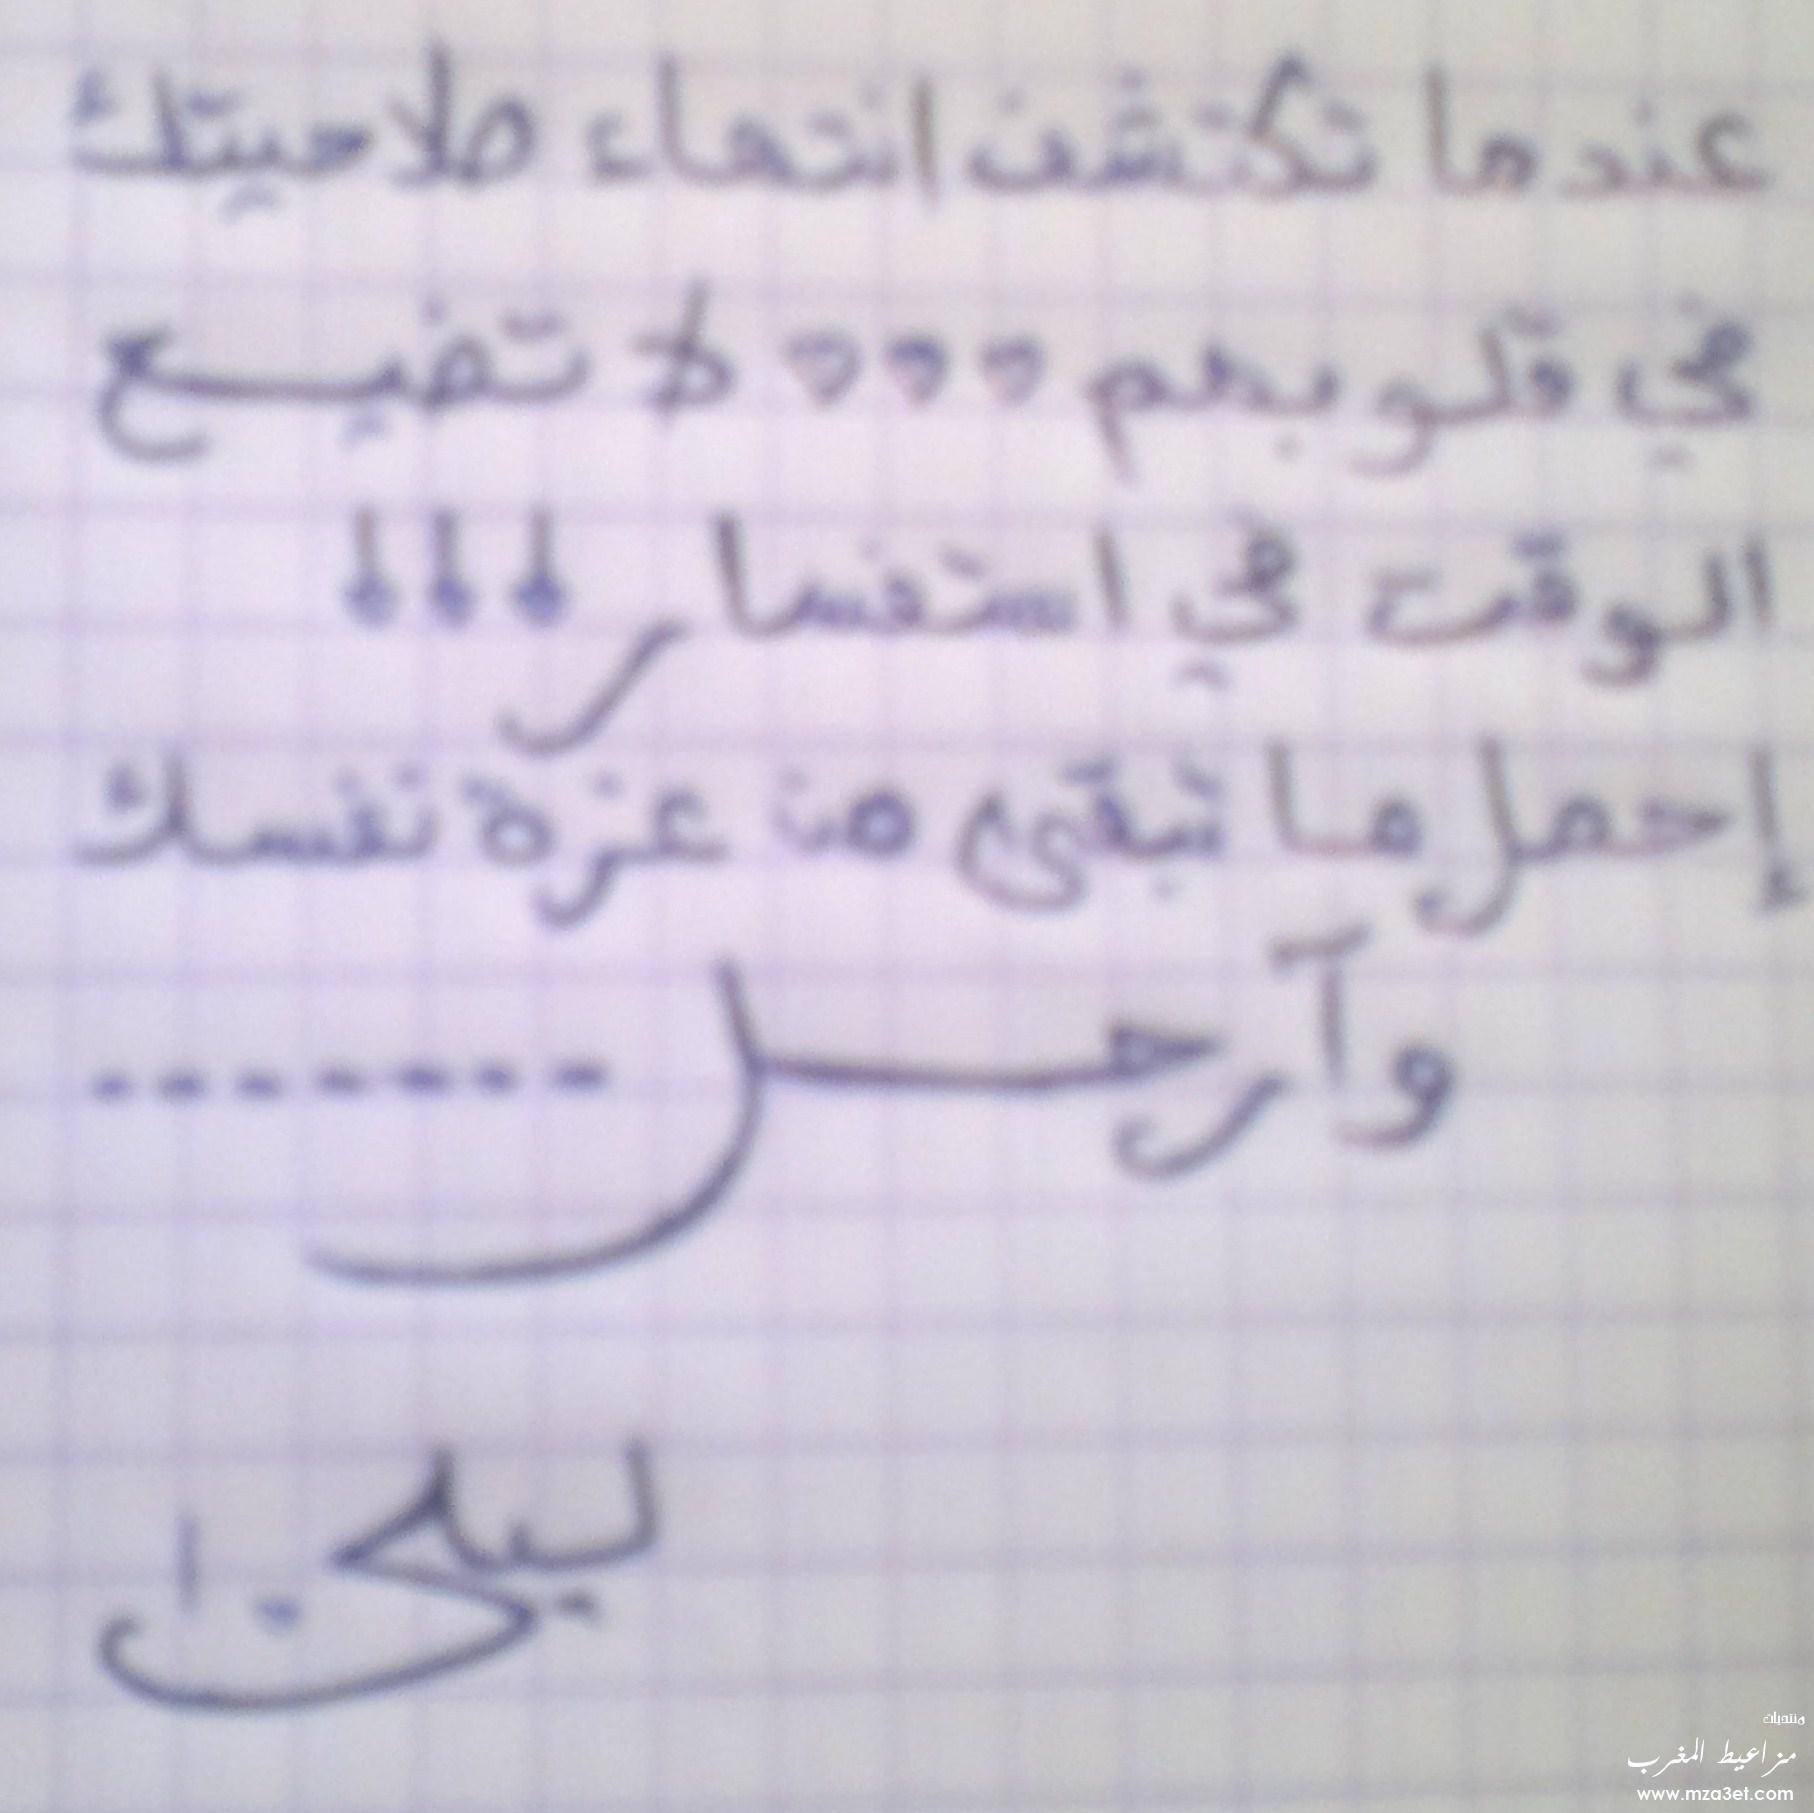 عندما تكتشف انتهاء صلاحيتك
في قلوبهم ♡♡♡ لا تضيع
الوقت في استفسار !!!
إحمل ما تبقى من عزة نفسك
وآرحل .......
ليلى . ا
منتديات
مزاعيط المغرب
www.mza3et.com